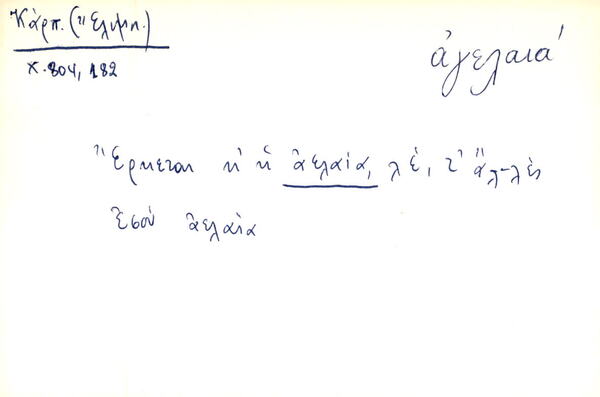 Κάρπ. (Ἔλυμπ.)
χ. 804, 182
ἀγελαιά
Ἔρκεται κ' ἡ ἀελαία, λέ, τ' ἄλ-λες
ἐσού ἀελαία